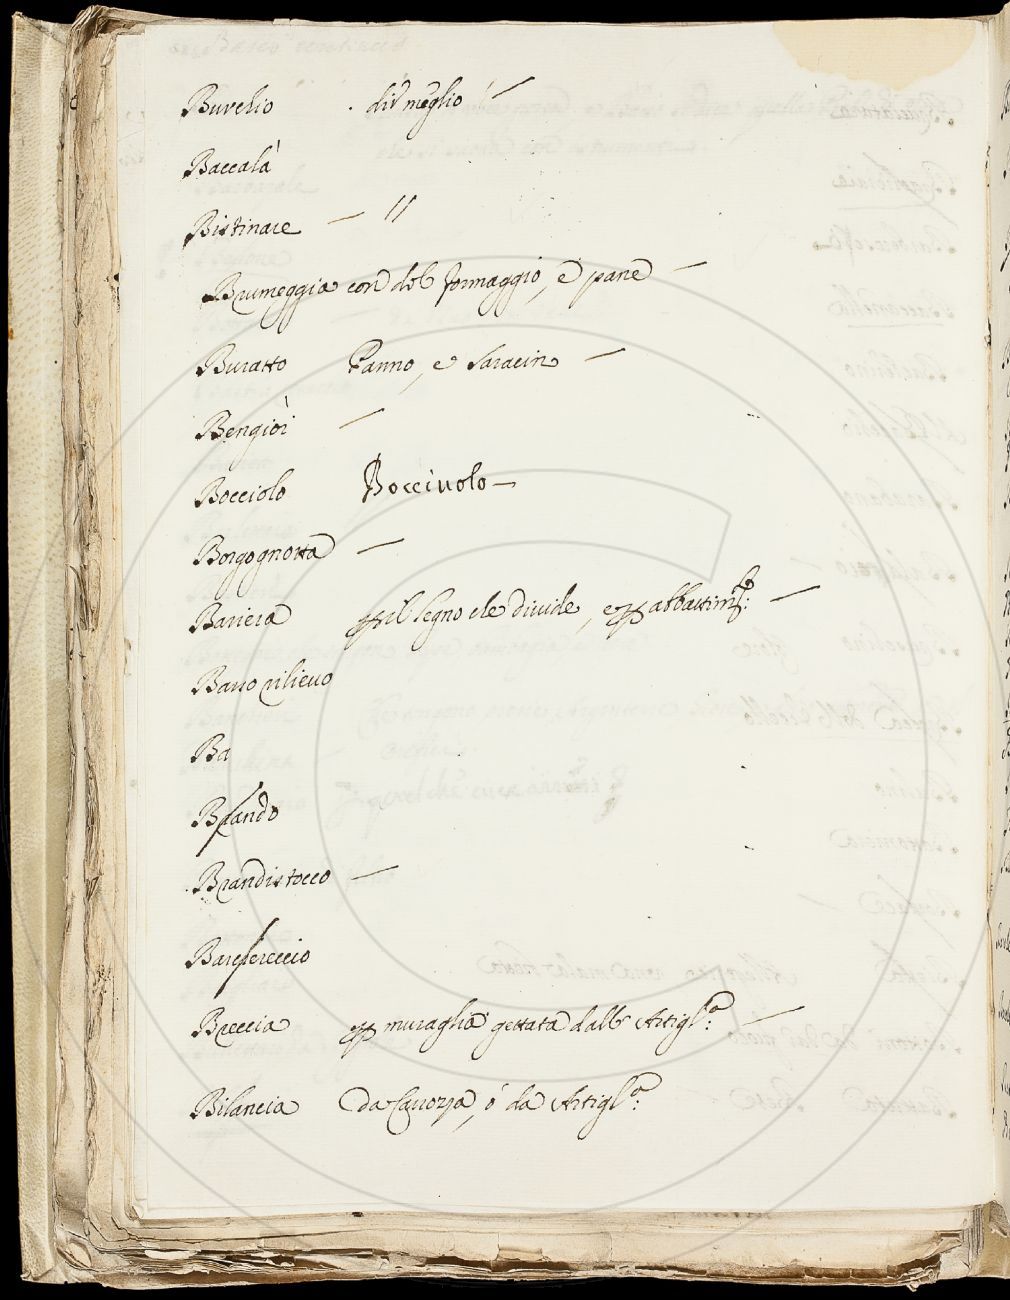 Burchio . di meglio —
Baccalà
Bistinace — //
Brumeggia con del formaggio, e pane —
Buratto Panno, e Saracin —
Bengiòi —
Bocciolo Bocciuolo —
Borgognotta —
Bariera il legno che divide, e abbattim:
Basso rilieuo
Ba
Brando
Brandistocco —
Breccia muraglia gettata dall' Artigl.a: —
Bilancia da Carozza, ó da Artigl.a: